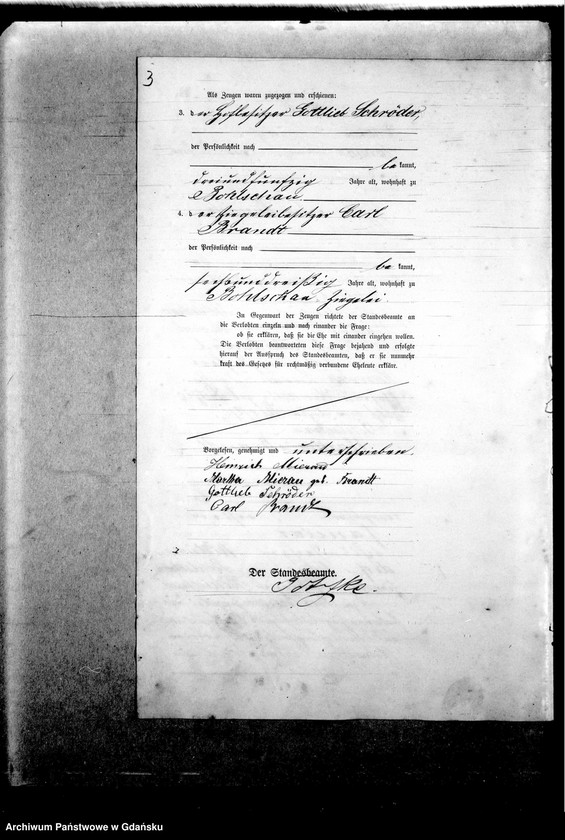 3
Als Zeugen waren zugezogen und erschienen:
3. der Hofbesitzer Gottlieb Schröder,
der Persönlichkeit nach
be kannt,
dreiundfunfzig Jahre alt, wohnhaft zu
Bohlschau
4. der Ziegeleibesitzer Carl
Brandt
der Persönlichkeit nach
be kannt,
sechsunddreißig Jahre alt, wohnhaft zu
Bohlschau Ziegelei
In Gegenwart der Zeugen richtete der Standesbeamte an
die Verlobten einzeln und nach einander die Frage:
ob sie erklären, daß sie die Ehe mit einander eingehen wollen.
Die Verlobten beantworteten diese Frage bejahend und erfolgte
hierauf der Ausspruch des Standesbeamten, daß er sie nunmehr
kraft des Gesetzes für rechtmäßig verbundene Eheleute erkläre.
Vorgelesen, genehmigt und unterschrieben.
Heinrich Mierau
Martha Mierau geb. Brandt
Gottlieb Schröder
Carl Brandt
Der Standesbeamte.
Archiwum Państwowe w Gdańsku